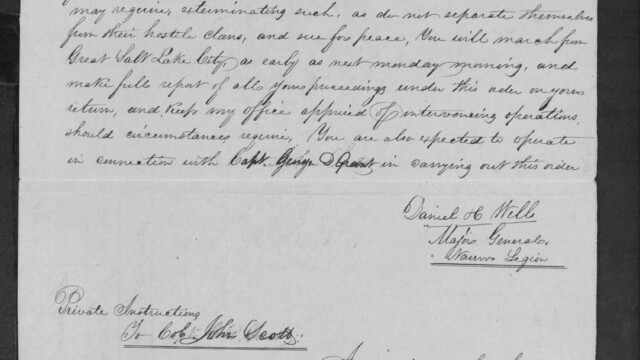 may require, exterminating such, as do not separate themselves
from their hostile clans, and sue for peace. You will march from
Great Salt Lake City, as early as next monday morning, and
make full report of all your proceedings under this order on your
return, and keep my office apprised of intervening operations,
should circumstances require. You are also expected to operate
in connection with Capt. George D Grant in carrying out this order
Daniel H Wells
Major General
Nauvoo Legion
Private Instructions
To Col. John Scott.